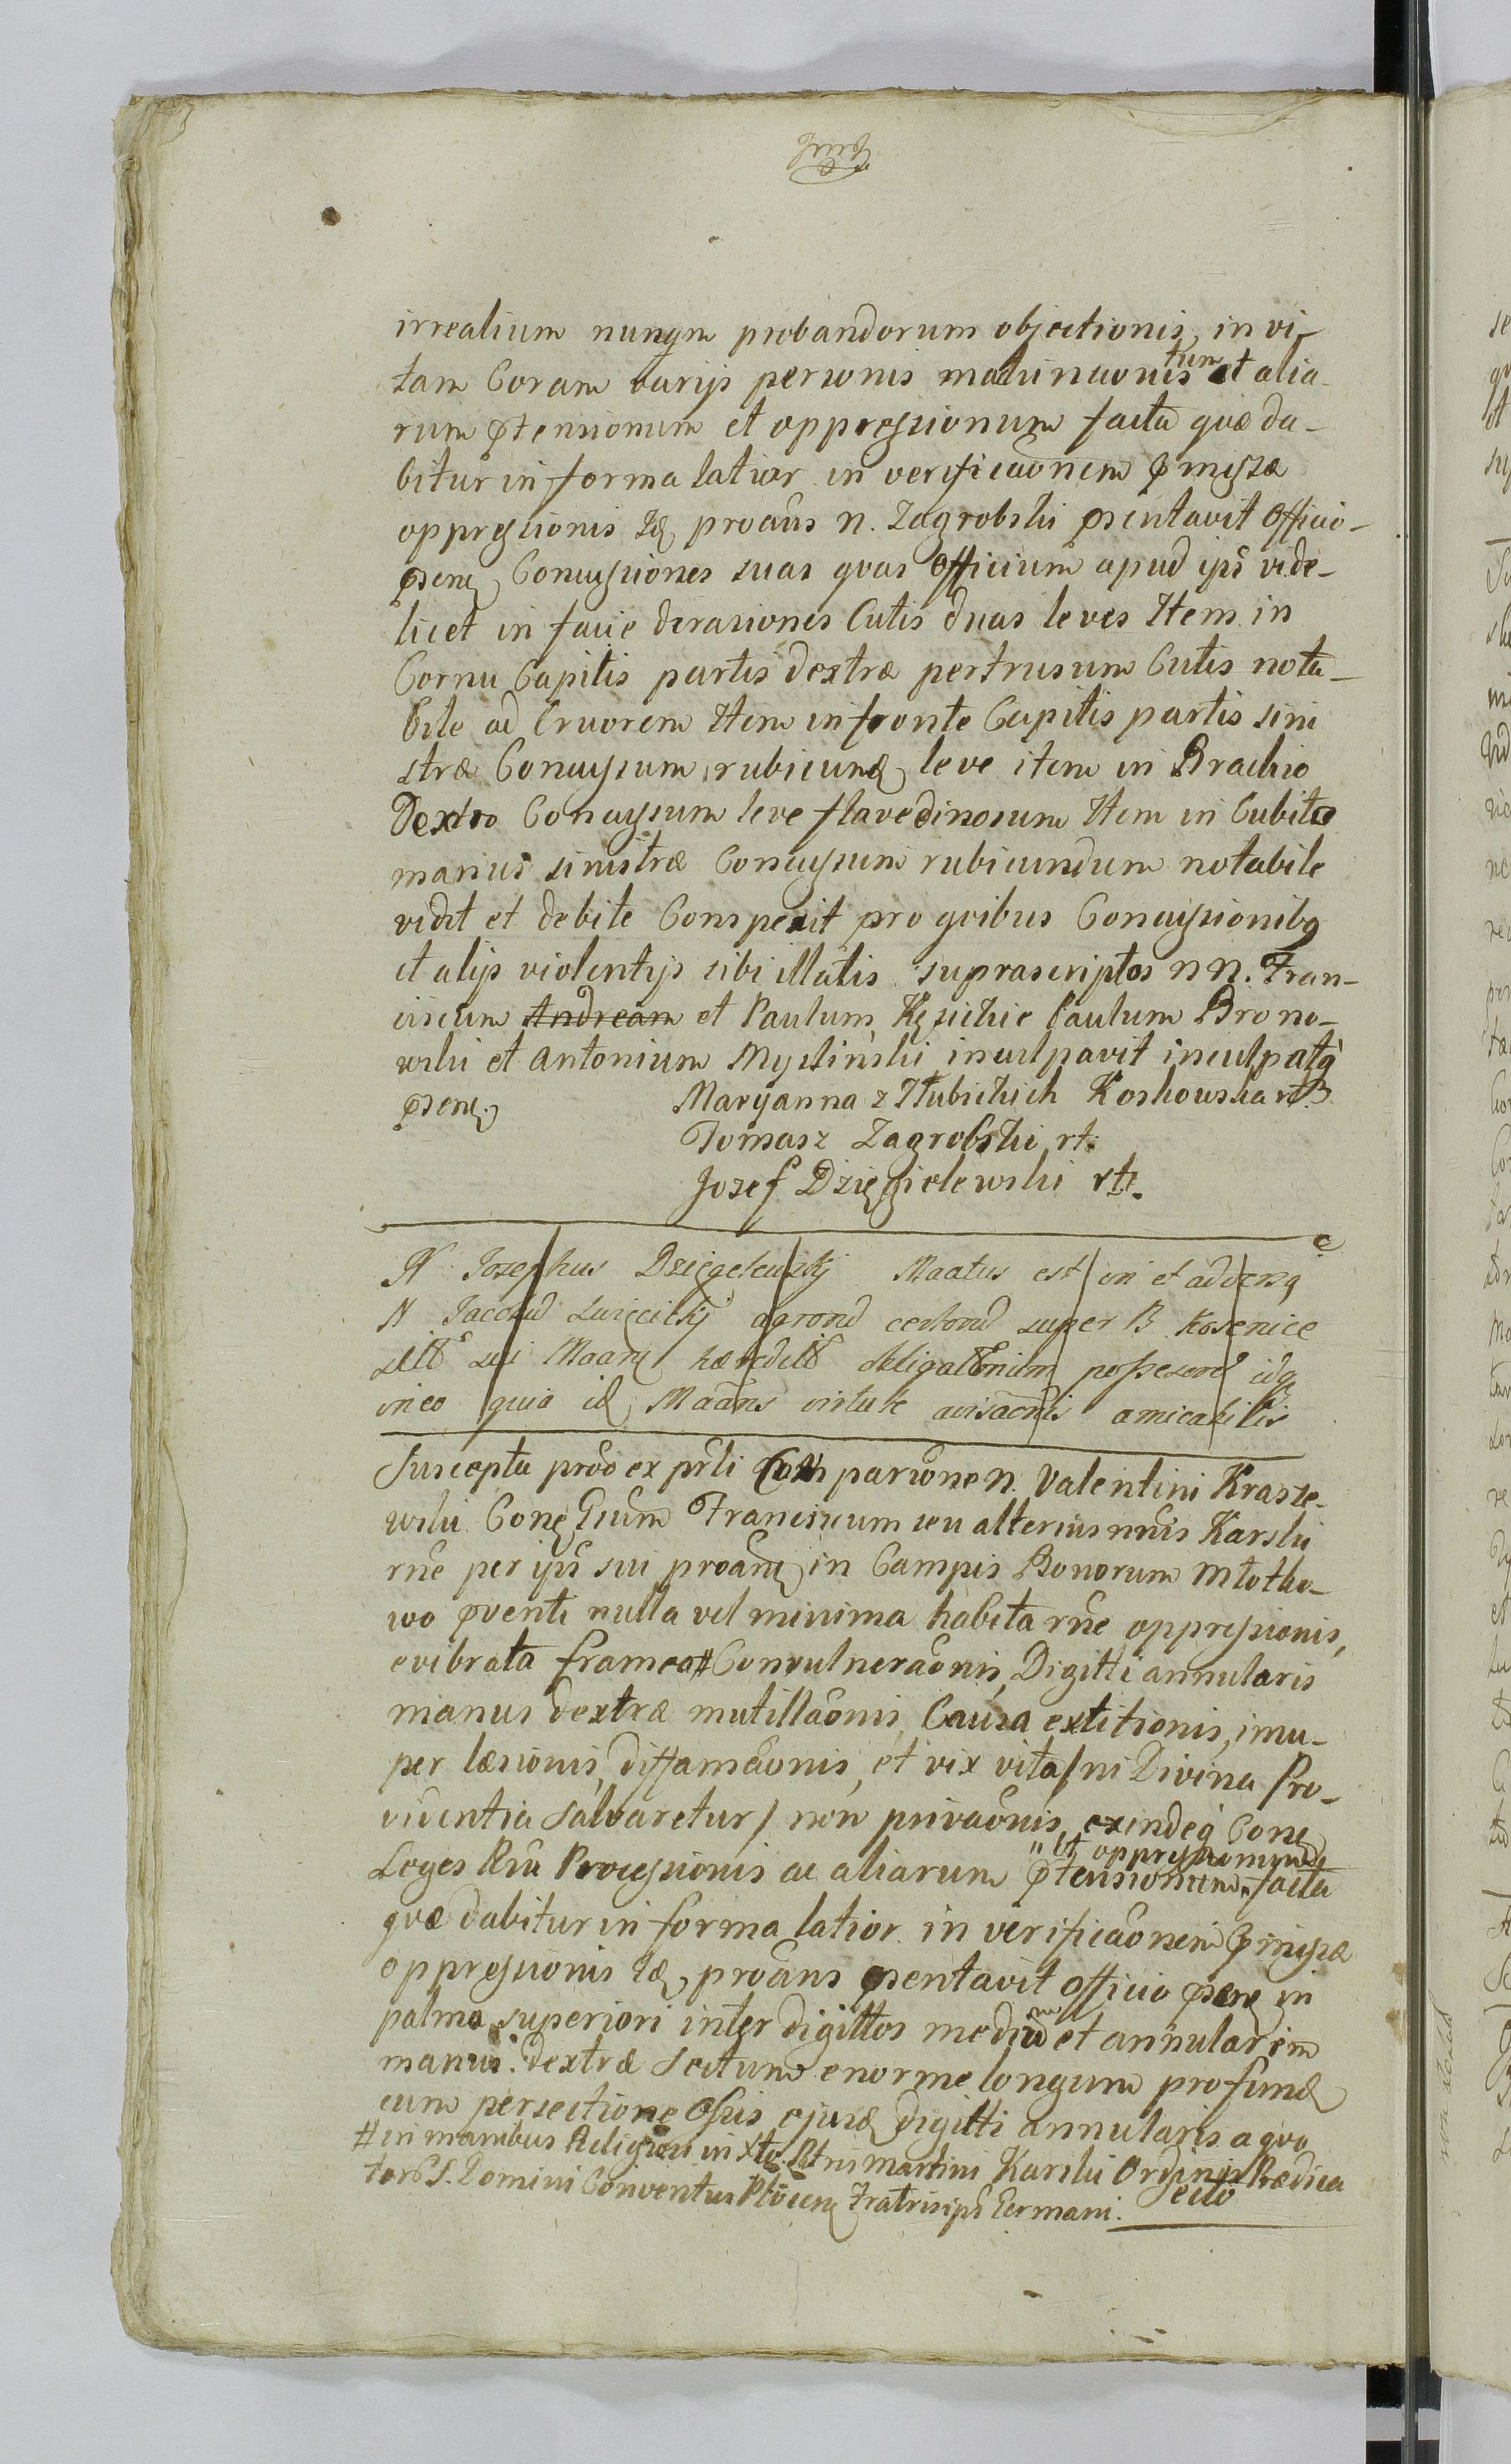 irrealium nunqm probandorum objectionis, in vi-
tam Coram varijs personis machinaonis tum et alia-
rum ptensionum et oppressionum facta quæ da-
bitur in forma latior in verificaonem pmissæ
oppressionis Id proans N. Zagrobski psentavit Officio
psen Concussiones suas quas Officium apud ips vide-
licet in facie derasiones Cutis duas leves Item in
Cornu Capitis partis dextræ pertrusum Cutis nota-
bile ad Cruorem Item in fronte Capitis partis sini
stræ Concussum rubicund leve item in Brachio
Dextro Concussum leve flavedinosum Item in Cubito
manus sinistræ Concussum rubicundum notabile
vidit et debite Conspexit pro quibus Concussionibq
et alijs violentijs sibi illatis suprascriptos NN. Fran-
ciscum Andream et Paulum Kęsickie Paulum Brono-
wski et Antonium Myslinski inculpavit inculpatq
psen. Maryanna z Hłubickich Koskowska
Tomasz Zagrobski rt.
Jozef Dzięgielewski rt.
N Josephus Dzięgelewskij Maatus est in et adversq
N Jacobud Swięcickij aarond certorud super B. Kosenice
sitt sui Maan hæredit obligattonium possesored idq
in eo quia id Maans virtute avisaonis amicabilis
Suscepta proo ex prli Comparuone N. Valentini Krasze-
wski Con Gnum Franciscum seu alterius nnis Karski
rne per ips sui proan in Campis Bonorum Młotko-
wo pventi nulla vel minima habita rne oppressionis,
evibrata framea # Convulneraonis, Digitti annularis
manus dextræ mutillaonis, Causa extitionis, imu-
per læsionis, diffamaonis, et vix vita / ni Divina Pro-
videntia Salvaretur / non privaonis, exindeq Con
Leges Rni Processionis ac aliarum ptensionum " et oppressionum " facta
quæ dabitur in forma latior in verificaonem pmissæ
oppressionis Id proans psentavit officio psen in
palma superiori inter digittos medium et annularem
manus dextræ Scitum enorme longum profund
cum persectione Ossis ejusd digitti annularis a quo
# in manibus Religiosi in Xto Ptris Martini Karski Ordinis Prædica
tor S. Domini Conventus Plocen Fratris ips Germani.